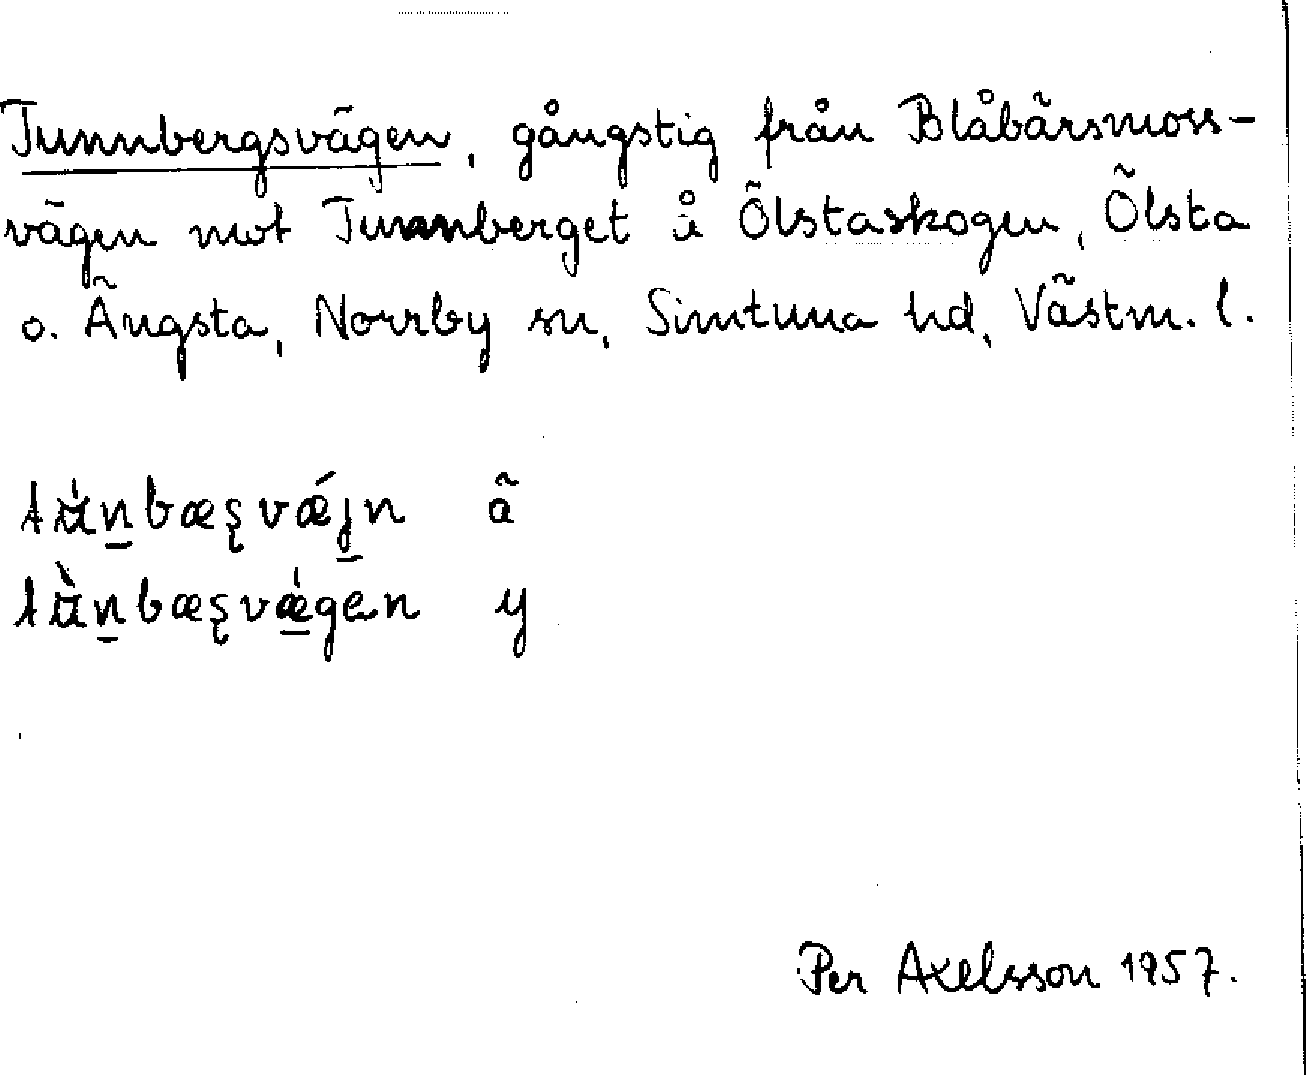 Tunnbergsvägen, gångstig från Blåbärsmoss-
vägen mot Tunnberget å Ölstaskogen, Ölsta
o. Ängsta, Norrby sn, Simtuna hd, Västm. l.
ä
y
Per Axelsson 1957.